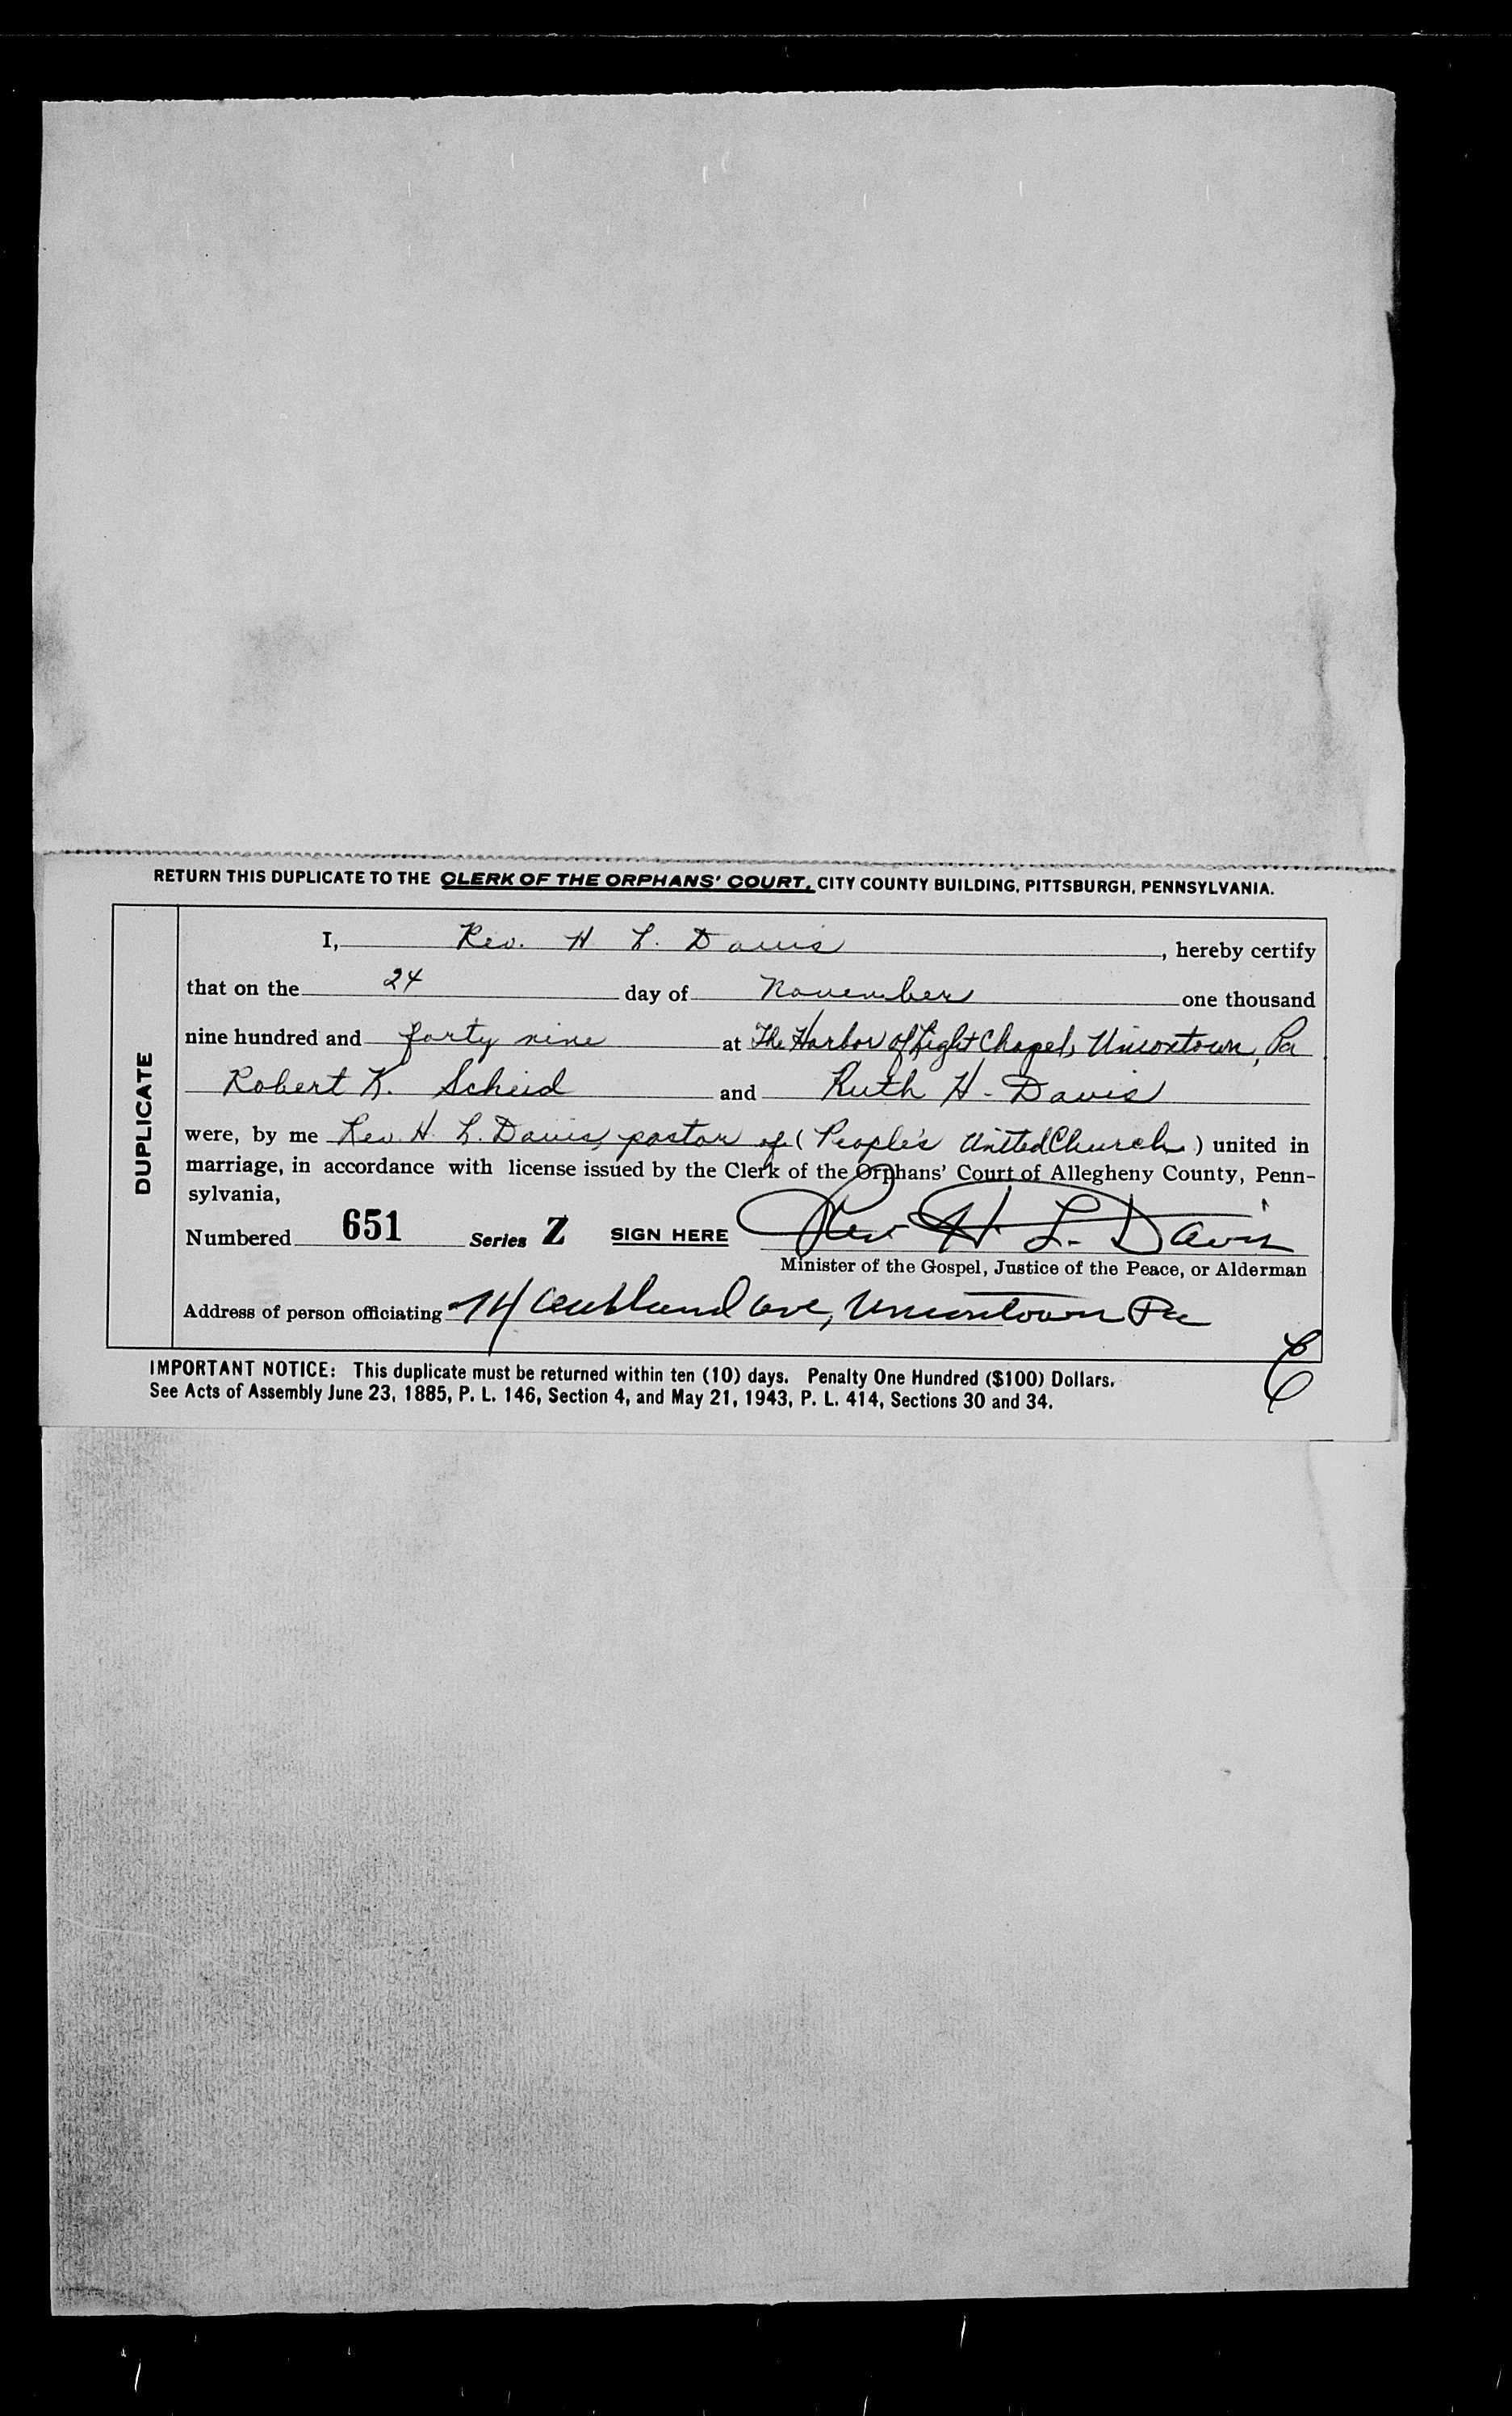 RETURN THIS DUPLICATE TO THE CLERK OF THE ORPHANS' COURT, CITY COUNTY BUILDING, PITTSBURGH, PENNSYLVANIA.
DUPLICATE
I, Rev. H L. Davis, hereby certify
that on the 24 day of November one thousand
nine hundred and forty nine at The Harbor of Light Chapel, Uniontown, Pa
Robert K. Scheid and Ruth H. Davis
were, by me Rev. H. L. Davis, pastor of (People's United Church) united in
marriage, in accordance with license issued by the Clerk of the Orphans' Court of Allegheny County, Penn-
sylvania,
Numbered 651 Series Z SIGN HERE Rev. H. L. Davis
Minister of the Gospel, Justice of the Peace, or Alderman
Address of person officiating 74 ave, Uniontown Pa
IMPORTANT NOTICE: This duplicate must be returned within ten (10) days. Penalty One Hundred ($100) Dollars.
See Acts of Assembly June 23, 1885, P. L. 146, Section 4, and May 21, 1943, P. L. 414, Sections 30 and 34.